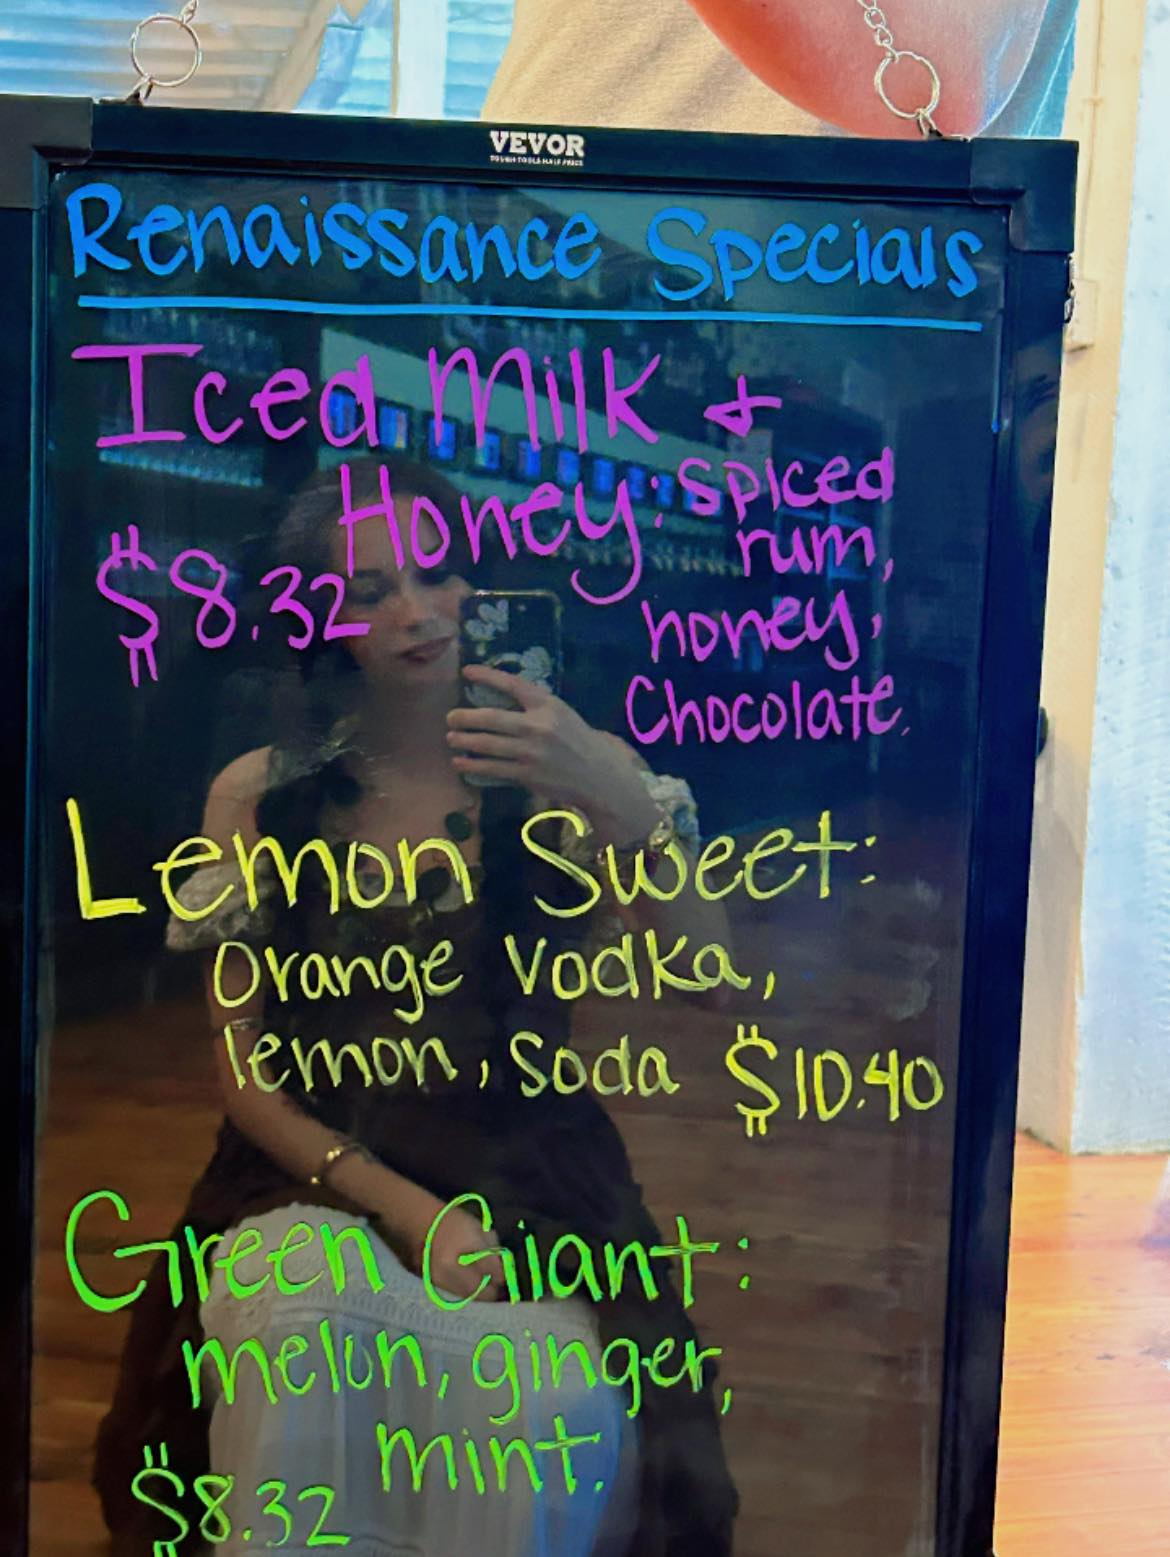 VEVOR
TOUGH TOOLS HALF PRICE
Renaissance Specials
Iced Milk &
Honey: spiced
rum,
$8.32
honey,
Chocolate.
Lemon Sweet:
Orange Vodka,
lemon, soda $10.40
Green Giant:
melon, ginger,
mint.
$8.32